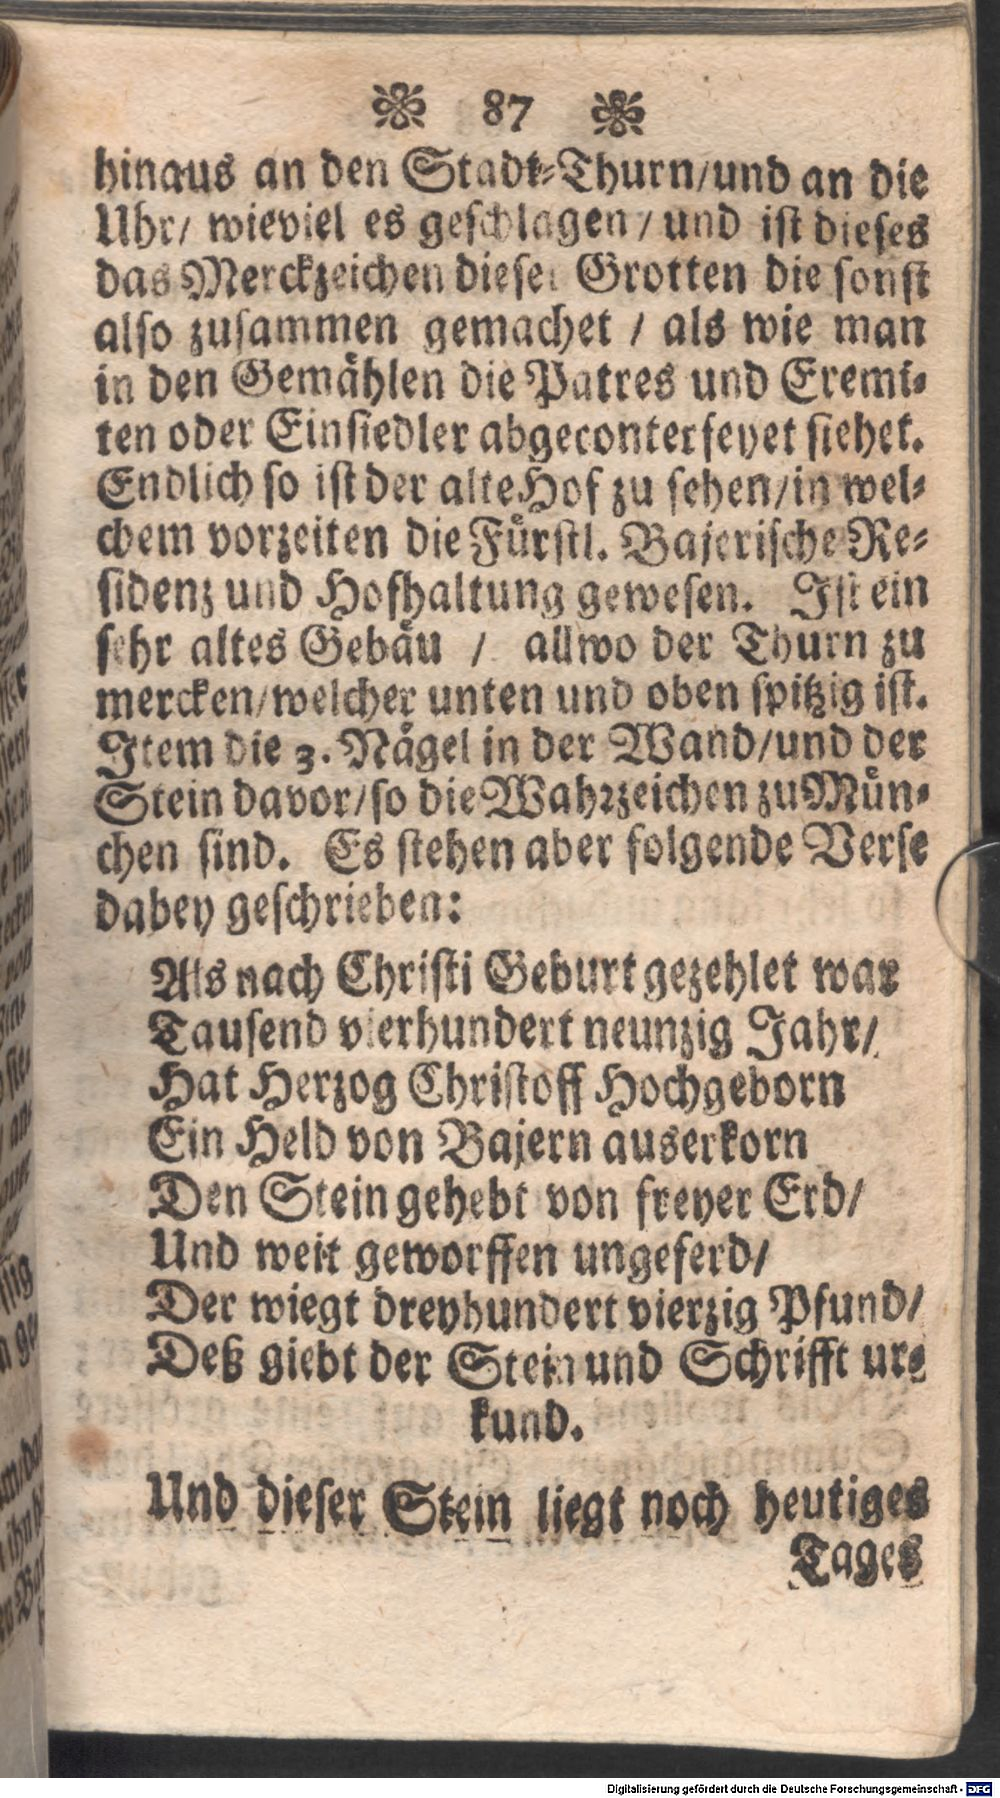 87
hinaus an den Stadt-Thurn/und an die
Uhr/ wieviel es geschlagen/ und ist dieses
das Merckzeichen dieser Grotten die sonst
also zusammen gemachet / als wie man
in den Gemählen die Patres und Eremi-
ten oder Einsiedler abgeconterfeyet siehet.
Endlich so ist der alte Hof zu sehen/in wel-
chem vorzeiten die Fürstl. Bajerische Re-
sidenz und Hofhaltung gewesen. Ist ein
sehr altes Gebäu / allwo der Thurn zu
mercken/welcher unten und oben spitzig ist.
Item die 3. Nägel in der Wand/und der
Stein davor/so die Wahrzeichen zu Mün-
chen sind. Es stehen aber folgende Verse
dabey geschrieben:
Als nach Christi Geburt gezehlet war
Tausend vierhundert neunzig Jahr/
Hat Herzog Christoff Hochgeborn
Ein Held von Bajern auserkorn
Den Stein gehebt von freyer Erd/
Und weit geworffen ungeferd/
Der wiegt dreyhundert vierzig Pfund/
Deß giebt der Stein und Schrifft ur-
kund.
Und dieser Stein liegt noch heutiges
Tages
Digitalisierung gefördert durch die Deutsche Forschungsgemeinschaft - DFG